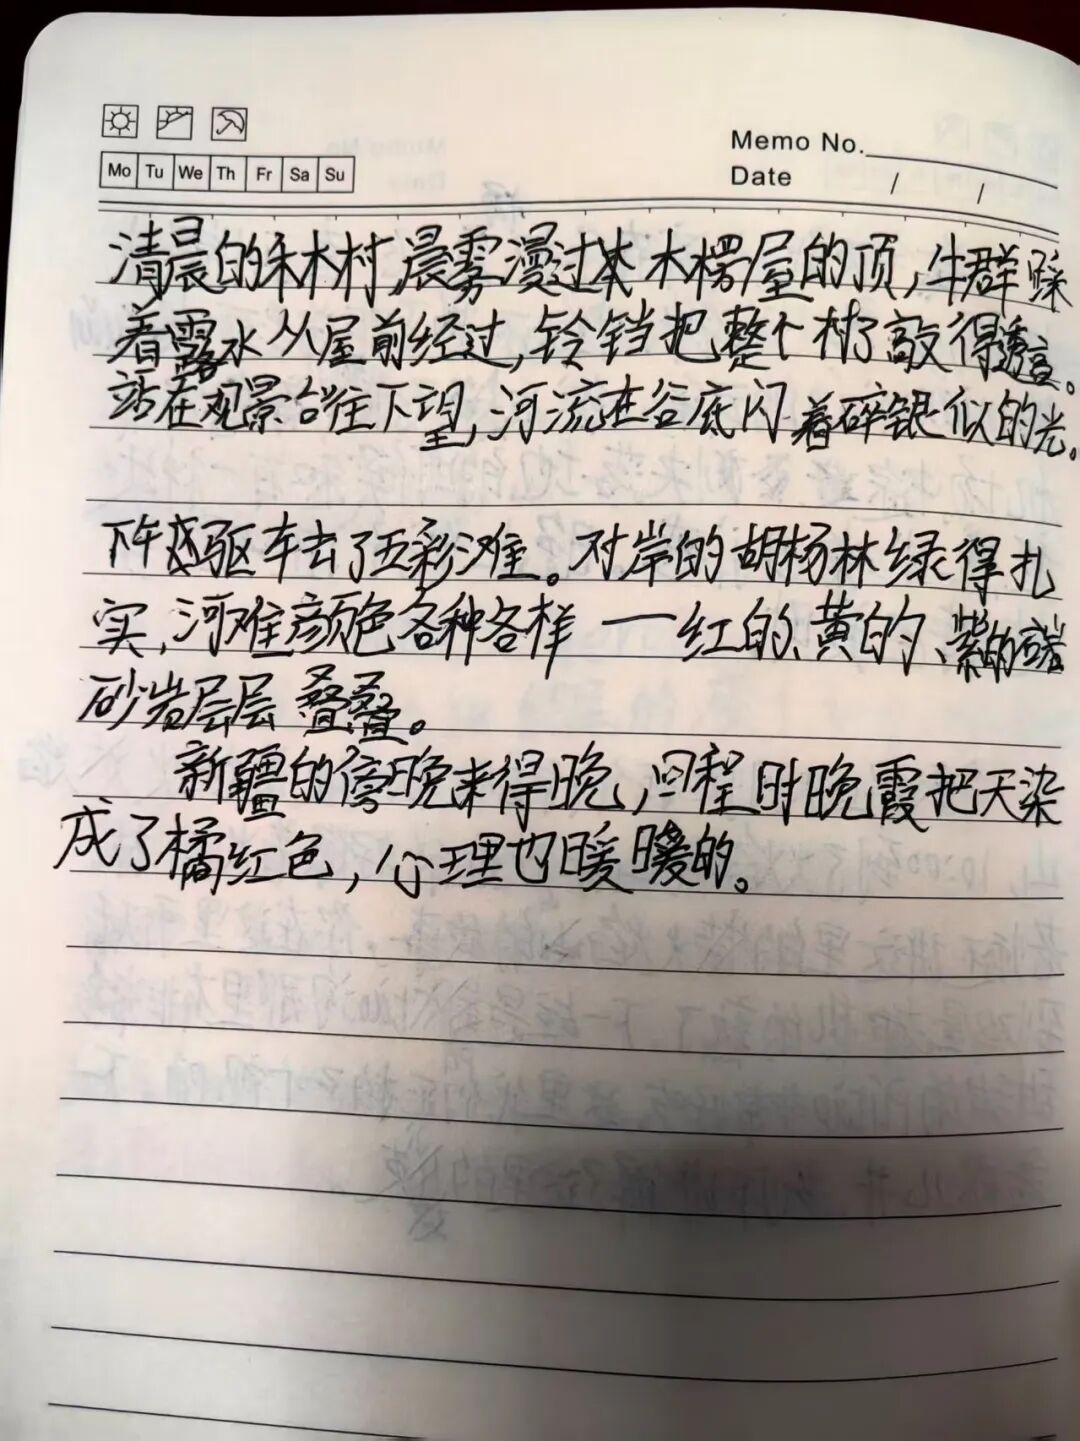 Mo Tu We Th Fr Sa Su
Memo No.
Date / /
清晨的禾木村,晨雾漫过木楞屋的顶,牛群踩
着露水从屋前经过,铃铛把整个村子敲得透亮。
站在观景台往下望,河流在谷底闪着碎银似的光。
下午驱车去了五彩滩。对岸的胡杨林绿得扎
实,河难颜色各种各样 一红的、黄的、紫的
砂岩层层叠叠。
新疆的傍晚来得晚,回程时晚霞把天染
成了橘红色,心理也暖暖的。